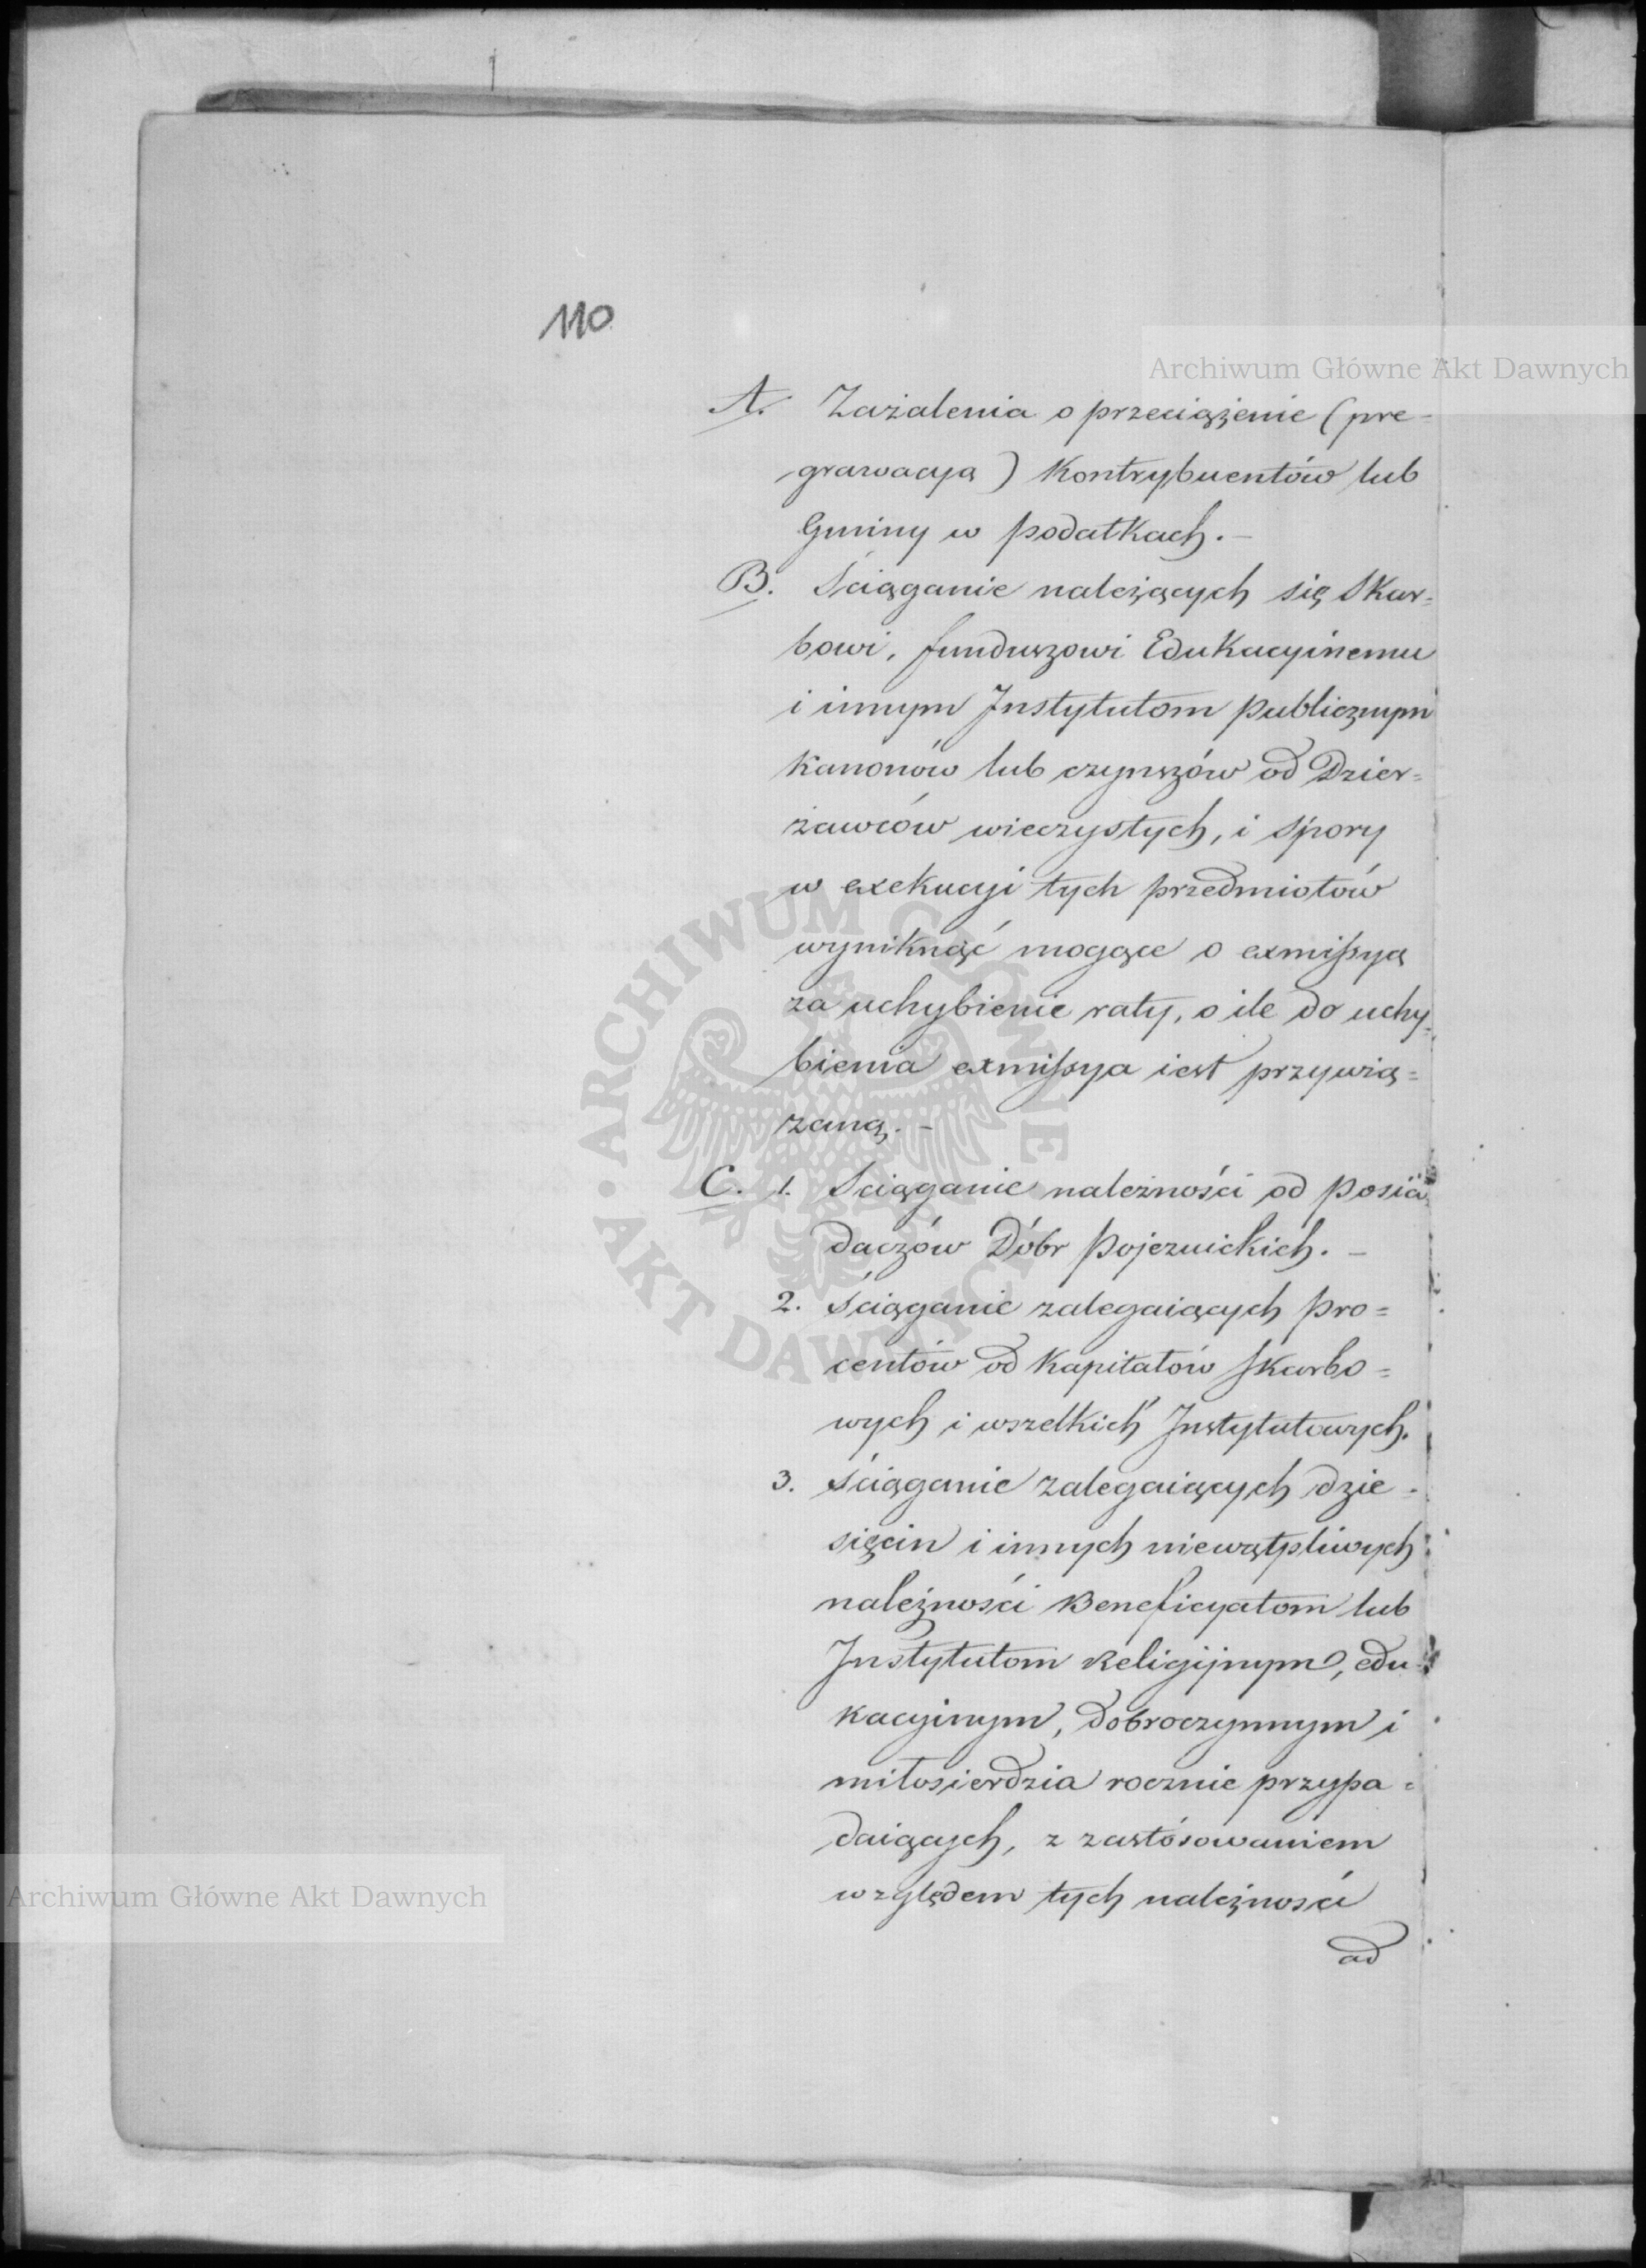 110
Archiwum Główne Akt Dawnych
A. Zażalenia o przeciążenie (pre-
grawacyą) Kontrybuentów lub
Gminy w podatkach.-
B. Ściąganie należących się Skar=
bowi, funduszowi Edukacyinemu
i innym Instytutom publicznym
kanonów lub czynszów od Dzier=
żawców wieczystych, i spory
w exekucyi tych przedmiotów
wyniknąć mogące o exmissyą
za uchybienie raty, o ile do uchy=
bienia exmissya iest przywią=
zaną.-
C. 1. Sciąganie należności od posia
daczów Dóbr pojezuickich.-
2. Ściąganie zalegaiących pro=
centów od Kapitałów Skarbo=
wych i wszelkich Instytutowych.
3. Ściąganie zalegaiących dzie-
sięcin i innych niewątpliwych
należności Beneficyatom lub
Instytutom Religijnym, edu-
kacyinym, dobroczynnym i
miłosierdzia rocznie przypa=
daiących, z zastósowaniem
względem tych należności
od
Archiwum Główne Akt Dawnych
ARCHIWUM GŁÓWNE AKT DAWNYCH